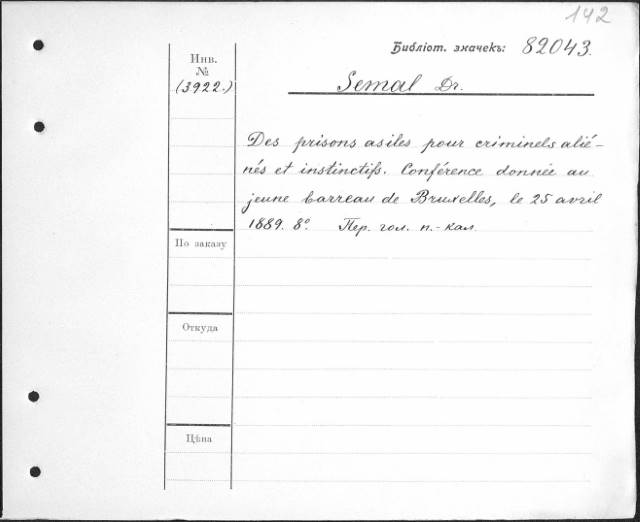 142
Библіот. значекъ: 82043.
Инв.
№
(3922.)
Semal Dr.
Des prisons asiles pour criminels alié-
nés et instinctifs. Conférence donnée au
jeune barreau de Bruxelles, le 25 avril
1889. 8º. Пер. гол. п.-кал.
По заказу
Откуда
Цѣна